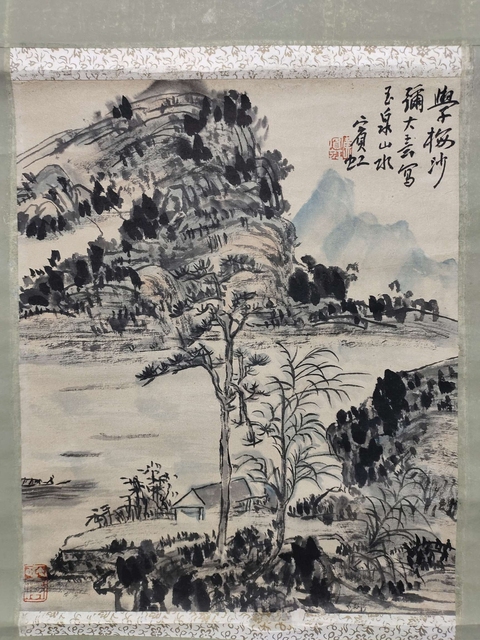 學梅沙
彌大意寫
玉泉山水
賓虹